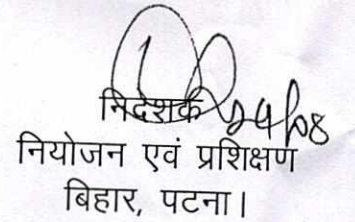 निदेशक 24/08
नियोजन एवं प्रशिक्षण
बिहार, पटना।